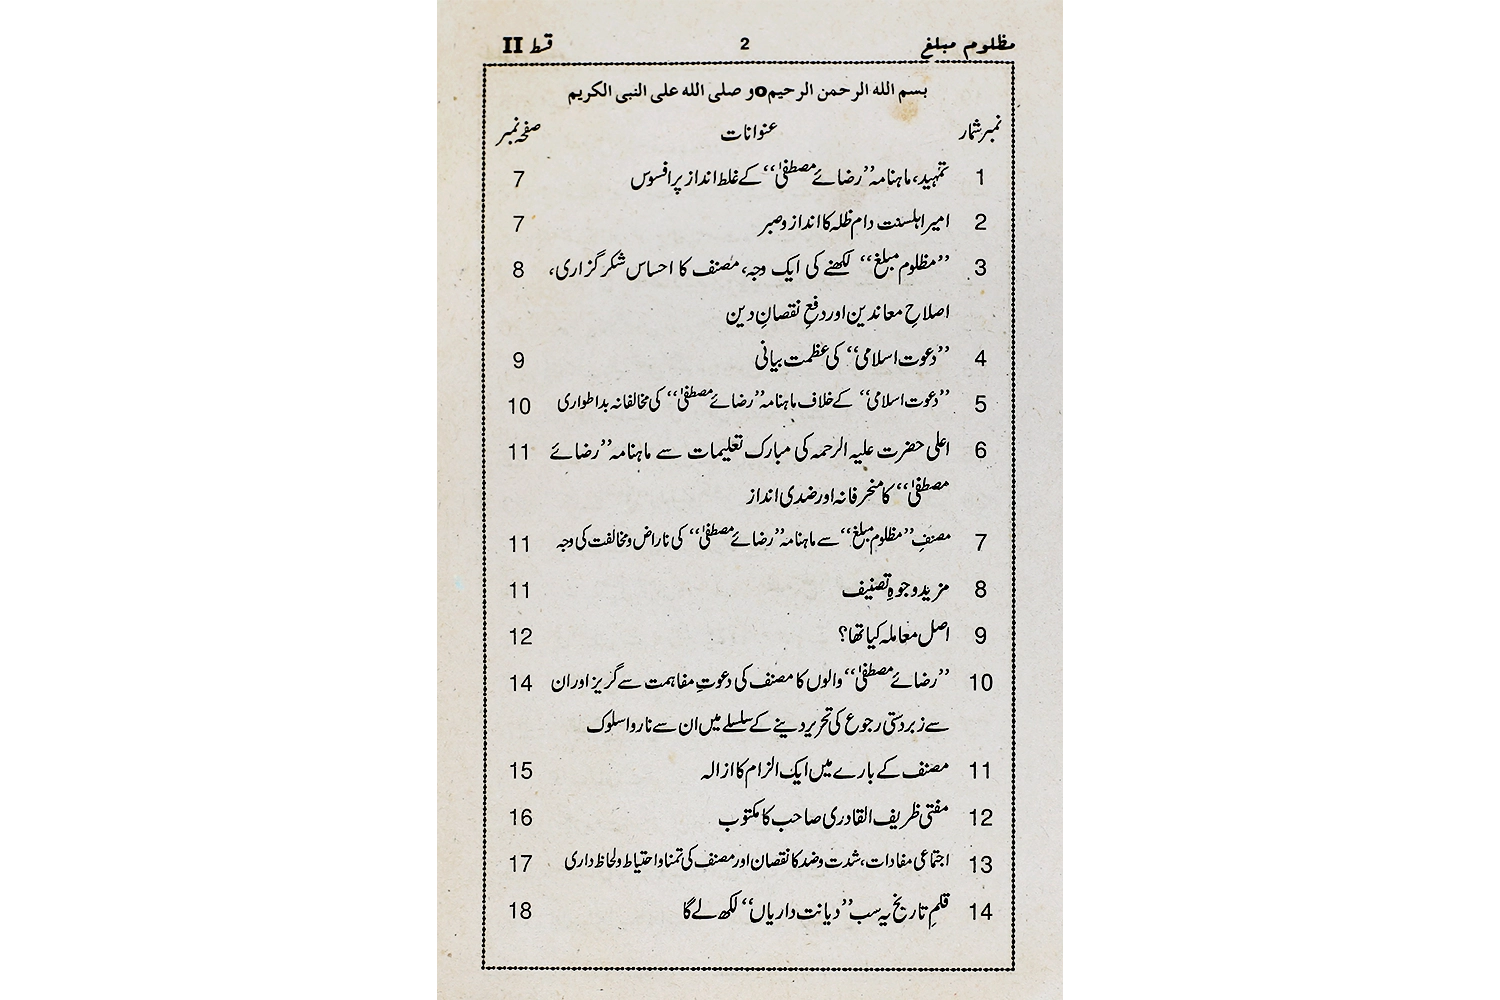 مظلوم مبلغ 2 قسط II
بسم الله الرحمن الرحيم o و صلى الله على النبى الكريم
نمبر شمار عنوانات صفحہ نمبر
1 تمہید، ماہنامہ ’’رضائے مصطفیٰ‘‘ کے غلط انداز پر افسوس 7
2 امیر اہلسنت دام ظلہ کا انداز و صبر 7
3 ’’مظلوم مبلغ‘‘ لکھنے کی ایک وجہ، مصنف کا احساس شکر گزاری، 8
اصلاحِ معاندین اور دفعِ نقصانِ دین
4 ’’دعوت اسلامی‘‘ کی عظمت بیانی 9
5 ’’دعوت اسلامی‘‘ کے خلاف ماہنامہ ’’رضائے مصطفیٰ‘‘ کی مخالفانہ بداطواری 10
6 اعلی حضرت علیہ الرحمہ کی مبارک تعلیمات سے ماہنامہ ’’رضائے 11
مصطفیٰ‘‘ کا منحرفانہ اور ضدی انداز
7 مصنفِ ’’مظلوم مبلغ‘‘ سے ماہنامہ ’’رضائے مصطفیٰ‘‘ کی ناراض و مخالفت کی وجہ 11
8 مزید وجوہِ تصنیف 11
9 اصل معاملہ کیا تھا؟ 12
10 ’’رضائے مصطفیٰ‘‘ والوں کا مصنف کی دعوتِ مفاہمت سے گریز اور ان 14
سے زبردستی رجوع کی تحریر دینے کے سلسلے میں ان سے ناروا سلوک
11 مصنف کے بارے میں ایک الزام کا ازالہ 15
12 مفتی ظریف القادری صاحب کا مکتوب 16
13 اجتماعی مفادات، شدت و ضد کا نقصان اور مصنف کی تمنا و احتیاط و لحاظ داری 17
14 قلمِ تاریخ یہ سب ’’دیانت داریاں‘‘ لکھ لے گا 18